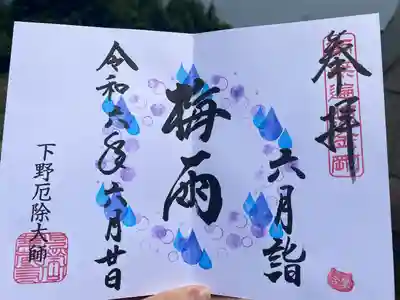 奉拝
六月詣
梅雨
令和六年六月廿日
下野厄除大師